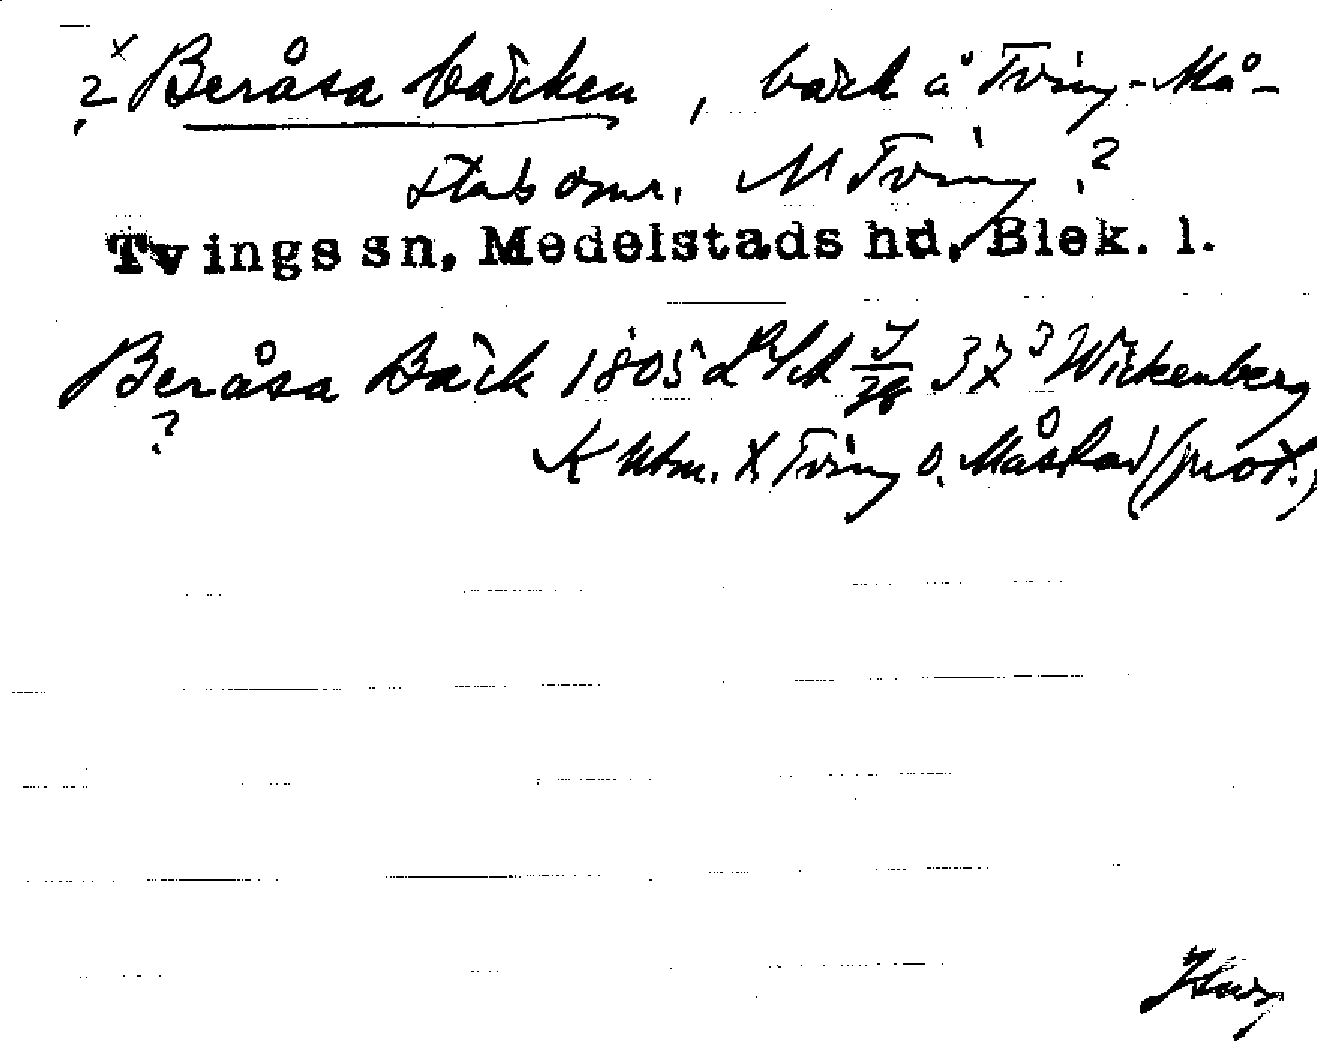 ? x Beråsa bäcken, bäck å Tving-Må-
stads omr. N Tving ?
Tvings sn, Medelstads hd, Blek. l.
Beråsa Bäck 1805 LSA 37³ Wickenberg
? K Utm. X Tving o. Måstad (prot.)